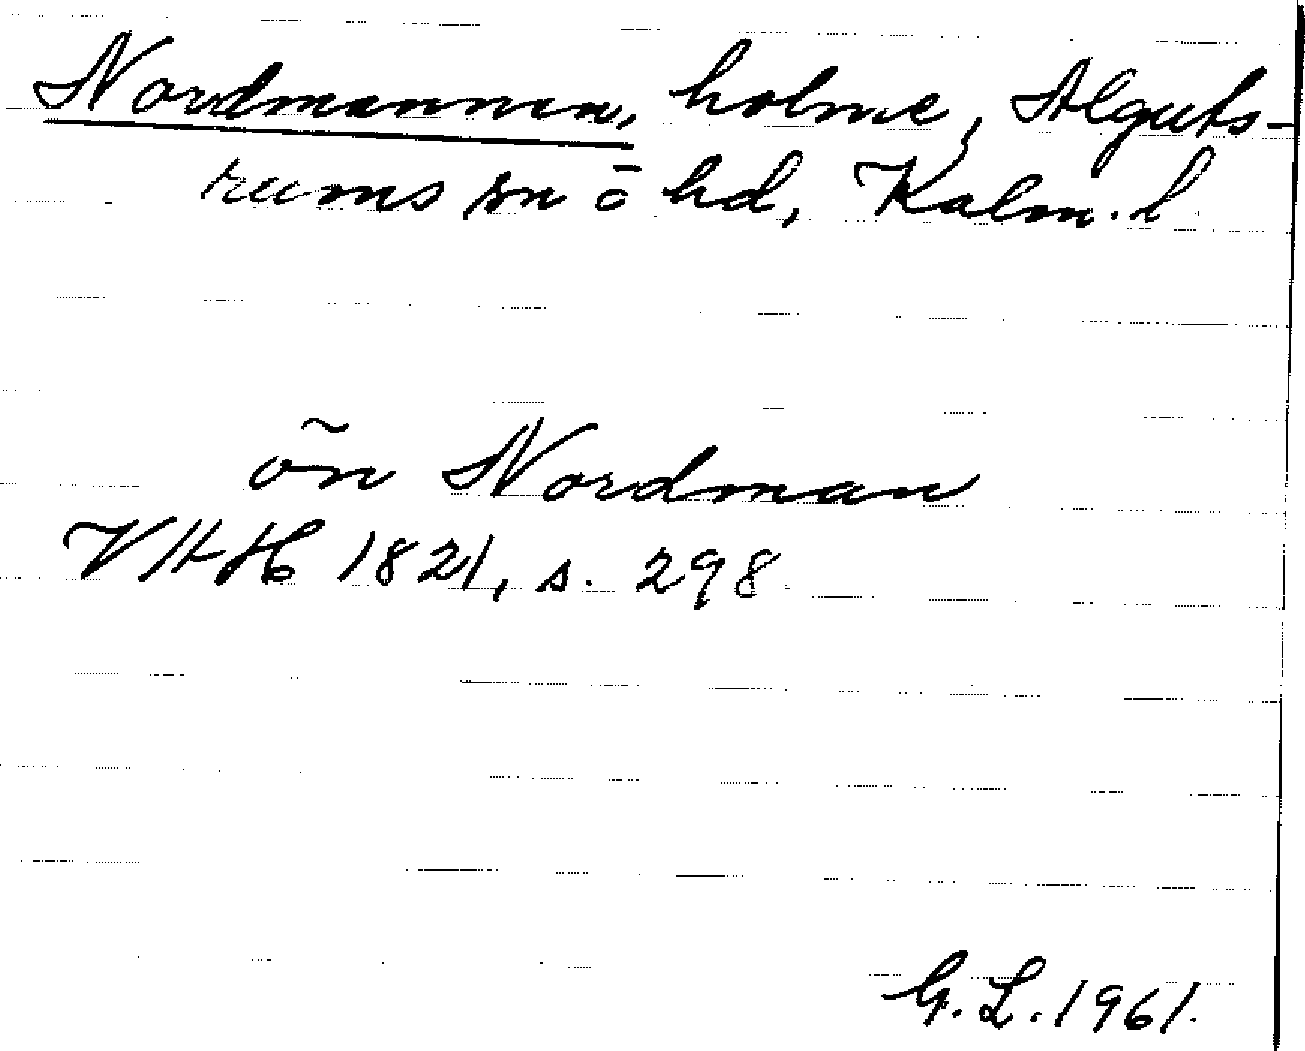 Nordmannen, holme, Alguts-
rums sn ō hd, Kalm. l
ön Nordman
VHAH 1821, s. 298
G. L. 1961.